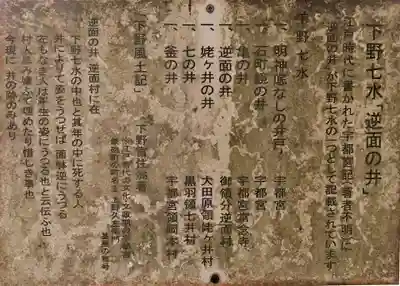 下野七水「逆面の井」
江戸時代に書かれた宇都宮記(著者不明)に
逆面の井が下野七水の一つとして記載されています
下野七水
一、明神底なしの井戸 宇都宮
一、石町鏡の井 宇都宮
一、亀の井 宇都宮
一、逆面の井 御領分逆面村
一、姥ヶ井の井 大田原領姥ヶ井村
一、七の井 黒羽領七井村
一、釜の井 宇都宮領岡本村
「下野風土記」
逆面の井 逆面村に在
下野七水の中也と其年の中に死する人
井によりて姿をうつせば 面皃逆にうつる
左もなき人は平生の姿にうつる也と云伝ふ也
村人忌み嫌ふて埋めたり惜しき事也
今現に 井の跡のみあり